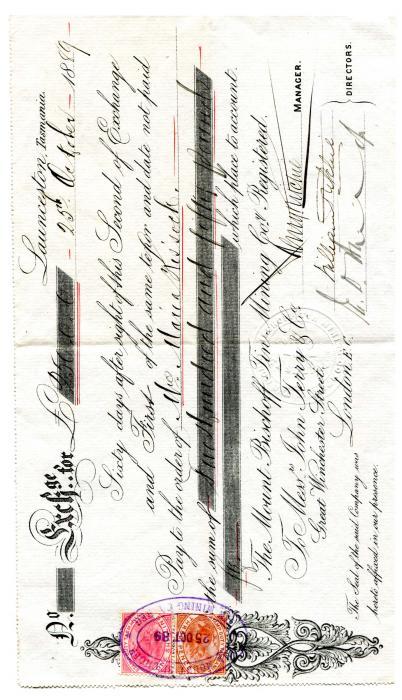 No. Exchge. for £
Launceston, Tasmania.
25th October 1889
Sixty days after sight of this Second of Exchange
and First of the same tenor and date not paid
Pay to the order of Mrs Maria Kisock.
the sum of Two Hundred and fifty Pounds
which place to account.
The Mount Bischoff Tin Mining Coy. Registered.
To Messrs. John Terry & Co.
Great Winchester Street,
London E.C.
MANAGER.
DIRECTORS.
The Seal of the said Company was
hereto affixed in our presence.
MINING
25 OCT 89